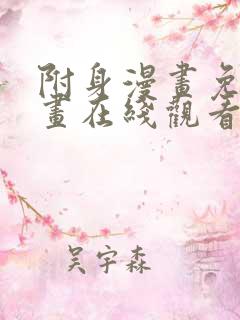 附身漫畫免
畫在綫觀看
吴宇森